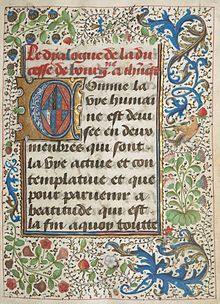 Le dialogue de la du
cesse de bourg. a ihucrist
Comme la
vye humai
ne est deui
see en deux
membres qui sont
la vye actiue et con
templatiue et que
pour paruenir a
beatitude qui est
la fin a quoy toutte